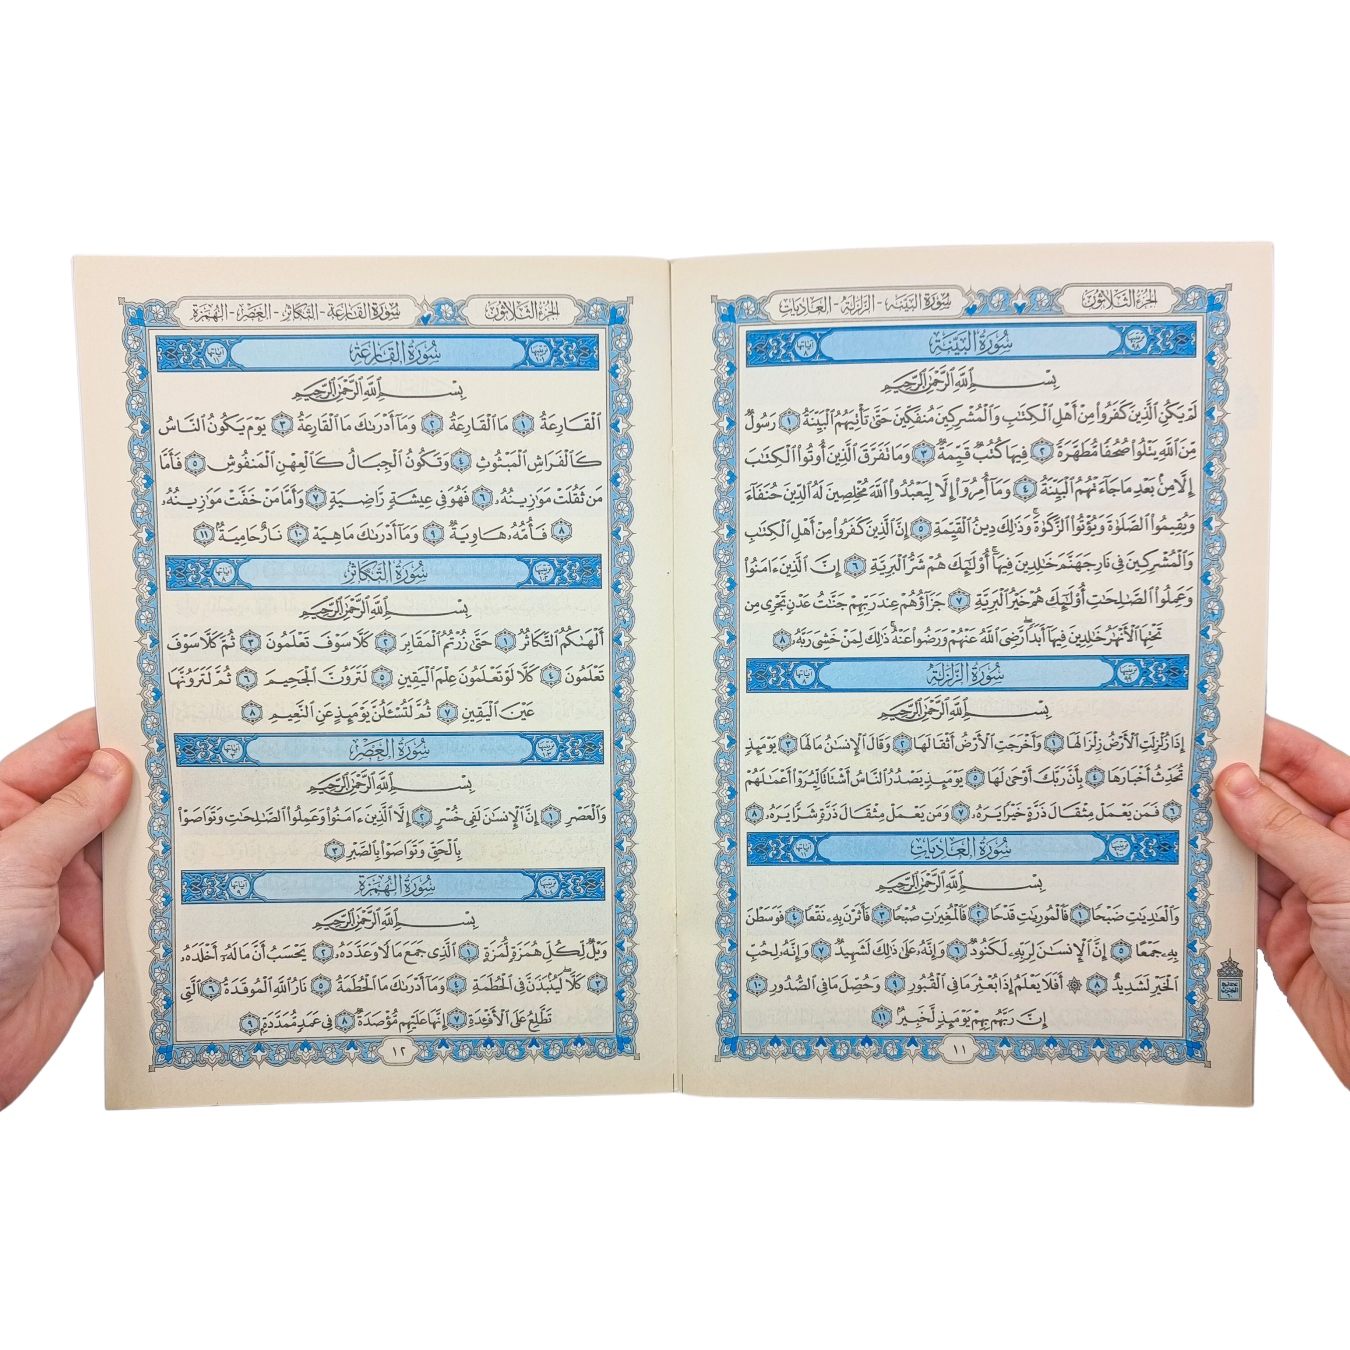 الجزء الثلاثون
سورة البينة - الزلزلة - العاديات
ترتيبها ٩٨
سُورَةُ البَيِّنَة
آياتها ٨
بِسْمِ ٱللَّهِ ٱلرَّحْمَٰنِ ٱلرَّحِيمِ
لَمْ يَكُنِ ٱلَّذِينَ كَفَرُوا۟ مِنْ أَهْلِ ٱلْكِتَٰبِ وَٱلْمُشْرِكِينَ مُنفَكِّينَ حَتَّىٰ تَأْتِيَهُمُ ٱلْبَيِّنَةُ ١ رَسُولٌ
مِّنَ ٱللَّهِ يَتْلُوا۟ صُحُفًا مُّطَهَّرَةً ٢ فِيهَا كُتُبٌ قَيِّمَةٌ ٣ وَمَا تَفَرَّقَ ٱلَّذِينَ أُوتُوا۟ ٱلْكِتَٰبَ
إِلَّا مِنۢ بَعْدِ مَا جَآءَتْهُمُ ٱلْبَيِّنَةُ ٤ وَمَآ أُمِرُوٓا۟ إِلَّا لِيَعْبُدُوا۟ ٱللَّهَ مُخْلِصِينَ لَهُ ٱلدِّينَ حُنَفَآءَ
وَيُقِيمُوا۟ ٱلصَّلَوٰةَ وَيُؤْتُوا۟ ٱلزَّكَوٰةَ ۚ وَذَٰلِكَ دِينُ ٱلْقَيِّمَةِ ٥ إِنَّ ٱلَّذِينَ كَفَرُوا۟ مِنْ أَهْلِ ٱلْكِتَٰبِ
وَٱلْمُشْرِكِينَ فِى نَارِ جَهَنَّمَ خَٰلِدِينَ فِيهَآ ۚ أُو۟لَٰٓئِكَ هُمْ شَرُّ ٱلْبَرِيَّةِ ٦ إِنَّ ٱلَّذِينَ ءَامَنُوا۟
وَعَمِلُوا۟ ٱلصَّٰلِحَٰتِ أُو۟لَٰٓئِكَ هُمْ خَيْرُ ٱلْبَرِيَّةِ ٧ جَزَآؤُهُمْ عِندَ رَبِّهِمْ جَنَّٰتُ عَدْنٍ تَجْرِى مِن
تَحْتِهَا ٱلْأَنْهَٰرُ خَٰلِدِينَ فِيهَآ أَبَدًا ۖ رَّضِىَ ٱللَّهُ عَنْهُمْ وَرَضُوا۟ عَنْهُ ۚ ذَٰلِكَ لِمَنْ خَشِىَ رَبَّهُۥ ٨
ترتيبها ٩٩
سُورَةُ الزَّلْزَلَة
آياتها ٨
بِسْمِ ٱللَّهِ ٱلرَّحْمَٰنِ ٱلرَّحِيمِ
إِذَا زُلْزِلَتِ ٱلْأَرْضُ زِلْزَالَهَا ١ وَأَخْرَجَتِ ٱلْأَرْضُ أَثْقَالَهَا ٢ وَقَالَ ٱلْإِنسَٰنُ مَا لَهَا ٣ يَوْمَئِذٍ
تُحَدِّثُ أَخْبَارَهَا ٤ بِأَنَّ رَبَّكَ أَوْحَىٰ لَهَا ٥ يَوْمَئِذٍ يَصْدُرُ ٱلنَّاسُ أَشْتَاتًا لِّيُرَوْا۟ أَعْمَٰلَهُمْ
٦ فَمَن يَعْمَلْ مِثْقَالَ ذَرَّةٍ خَيْرًا يَرَهُۥ ٧ وَمَن يَعْمَلْ مِثْقَالَ ذَرَّةٍ شَرًّا يَرَهُۥ ٨
ترتيبها ١٠٠
سُورَةُ العَادِيَات
آياتها ١١
بِسْمِ ٱللَّهِ ٱلرَّحْمَٰنِ ٱلرَّحِيمِ
وَٱلْعَٰدِيَٰتِ ضَبْحًا ١ فَٱلْمُورِيَٰتِ قَدْحًا ٢ فَٱلْمُغِيرَٰتِ صُبْحًا ٣ فَأَثَرْنَ بِهِۦ نَقْعًا ٤ فَوَسَطْنَ
بِهِۦ جَمْعًا ٥ إِنَّ ٱلْإِنسَٰنَ لِرَبِّهِۦ لَكَنُودٌ ٦ وَإِنَّهُۥ عَلَىٰ ذَٰلِكَ لَشَهِيدٌ ٧ وَإِنَّهُۥ لِحُبِّ
ٱلْخَيْرِ لَشَدِيدٌ ٨ ۞ أَفَلَا يَعْلَمُ إِذَا بُعْثِرَ مَا فِى ٱلْقُبُورِ ٩ وَحُصِّلَ مَا فِى ٱلصُّدُورِ ١٠
إِنَّ رَبَّهُم بِهِمْ يَوْمَئِذٍ لَّخَبِيرٌۢ ١١
١١
الجزء الثلاثون
سورة القارعة - التكاثر - العصر - الهمزة
ترتيبها ١٠١
سُورَةُ القَارِعَة
آياتها ١١
بِسْمِ ٱللَّهِ ٱلرَّحْمَٰنِ ٱلرَّحِيمِ
ٱلْقَارِعَةُ ١ مَا ٱلْقَارِعَةُ ٢ وَمَآ أَدْرَىٰكَ مَا ٱلْقَارِعَةُ ٣ يَوْمَ يَكُونُ ٱلنَّاسُ
كَٱلْفَرَاشِ ٱلْمَبْثُوثِ ٤ وَتَكُونُ ٱلْجِبَالُ كَٱلْعِهْنِ ٱلْمَنفُوشِ ٥ فَأَمَّا
مَن ثَقُلَتْ مَوَٰزِينُهُۥ ٦ فَهُوَ فِى عِيشَةٍ رَّاضِيَةٍ ٧ وَأَمَّا مَنْ خَفَّتْ مَوَٰزِينُهُۥ
٨ فَأُمُّهُۥ هَاوِيَةٌ ٩ وَمَآ أَدْرَىٰكَ مَا هِيَهْ ١٠ نَارٌ حَامِيَةٌۢ ١١
ترتيبها ١٠٢
سُورَةُ التَّكَاثُر
آياتها ٨
بِسْمِ ٱللَّهِ ٱلرَّحْمَٰنِ ٱلرَّحِيمِ
أَلْهَىٰكُمُ ٱلتَّكَاثُرُ ١ حَتَّىٰ زُرْتُمُ ٱلْمَقَابِرَ ٢ كَلَّا سَوْفَ تَعْلَمُونَ ٣ ثُمَّ كَلَّا سَوْفَ
تَعْلَمُونَ ٤ كَلَّا لَوْ تَعْلَمُونَ عِلْمَ ٱلْيَقِينِ ٥ لَتَرَوُنَّ ٱلْجَحِيمَ ٦ ثُمَّ لَتَرَوُنَّهَا
عَيْنَ ٱلْيَقِينِ ٧ ثُمَّ لَتُسْـَٔلُنَّ يَوْمَئِذٍ عَنِ ٱلنَّعِيمِ ٨
ترتيبها ١٠٣
سُورَةُ العَصْر
آياتها ٣
بِسْمِ ٱللَّهِ ٱلرَّحْمَٰنِ ٱلرَّحِيمِ
وَٱلْعَصْرِ ١ إِنَّ ٱلْإِنسَٰنَ لَفِى خُسْرٍ ٢ إِلَّا ٱلَّذِينَ ءَامَنُوا۟ وَعَمِلُوا۟ ٱلصَّٰلِحَٰتِ وَتَوَاصَوْا۟
بِٱلْحَقِّ وَتَوَاصَوْا۟ بِٱلصَّبْرِ ٣
ترتيبها ١٠٤
سُورَةُ الهُمَزَة
آياتها ٩
بِسْمِ ٱللَّهِ ٱلرَّحْمَٰنِ ٱلرَّحِيمِ
وَيْلٌ لِّكُلِّ هُمَزَةٍ لُّمَزَةٍ ١ ٱلَّذِى جَمَعَ مَالًا وَعَدَّدَهُۥ ٢ يَحْسَبُ أَنَّ مَالَهُۥٓ أَخْلَدَهُۥ
٣ كَلَّا ۖ لَيُنۢبَذَنَّ فِى ٱلْحُطَمَةِ ٤ وَمَآ أَدْرَىٰكَ مَا ٱلْحُطَمَةُ ٥ نَارُ ٱللَّهِ ٱلْمُوقَدَةُ ٦ ٱلَّتِى
تَطَّلِعُ عَلَى ٱلْأَفْـِٔدَةِ ٧ إِنَّهَا عَلَيْهِم مُّؤْصَدَةٌ ٨ فِى عَمَدٍ مُّمَدَّدَةٍۭ ٩
١٢